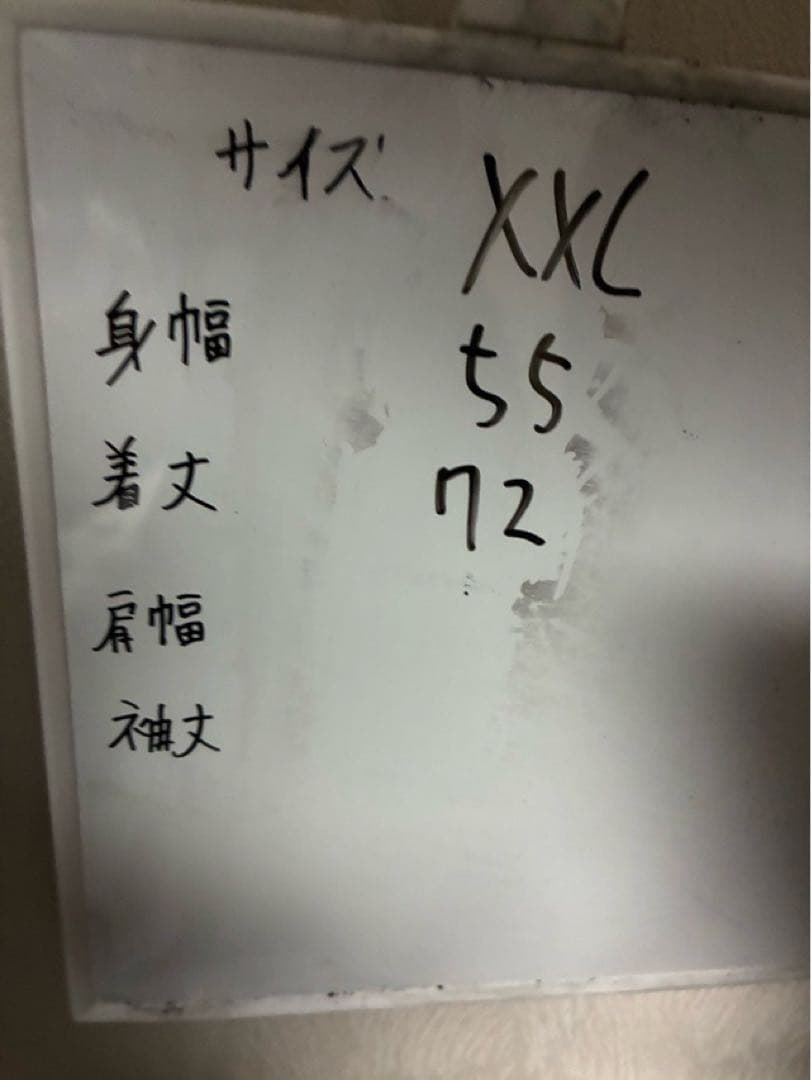 サイズ XXL
身幅 55
着丈 72
肩幅
袖丈